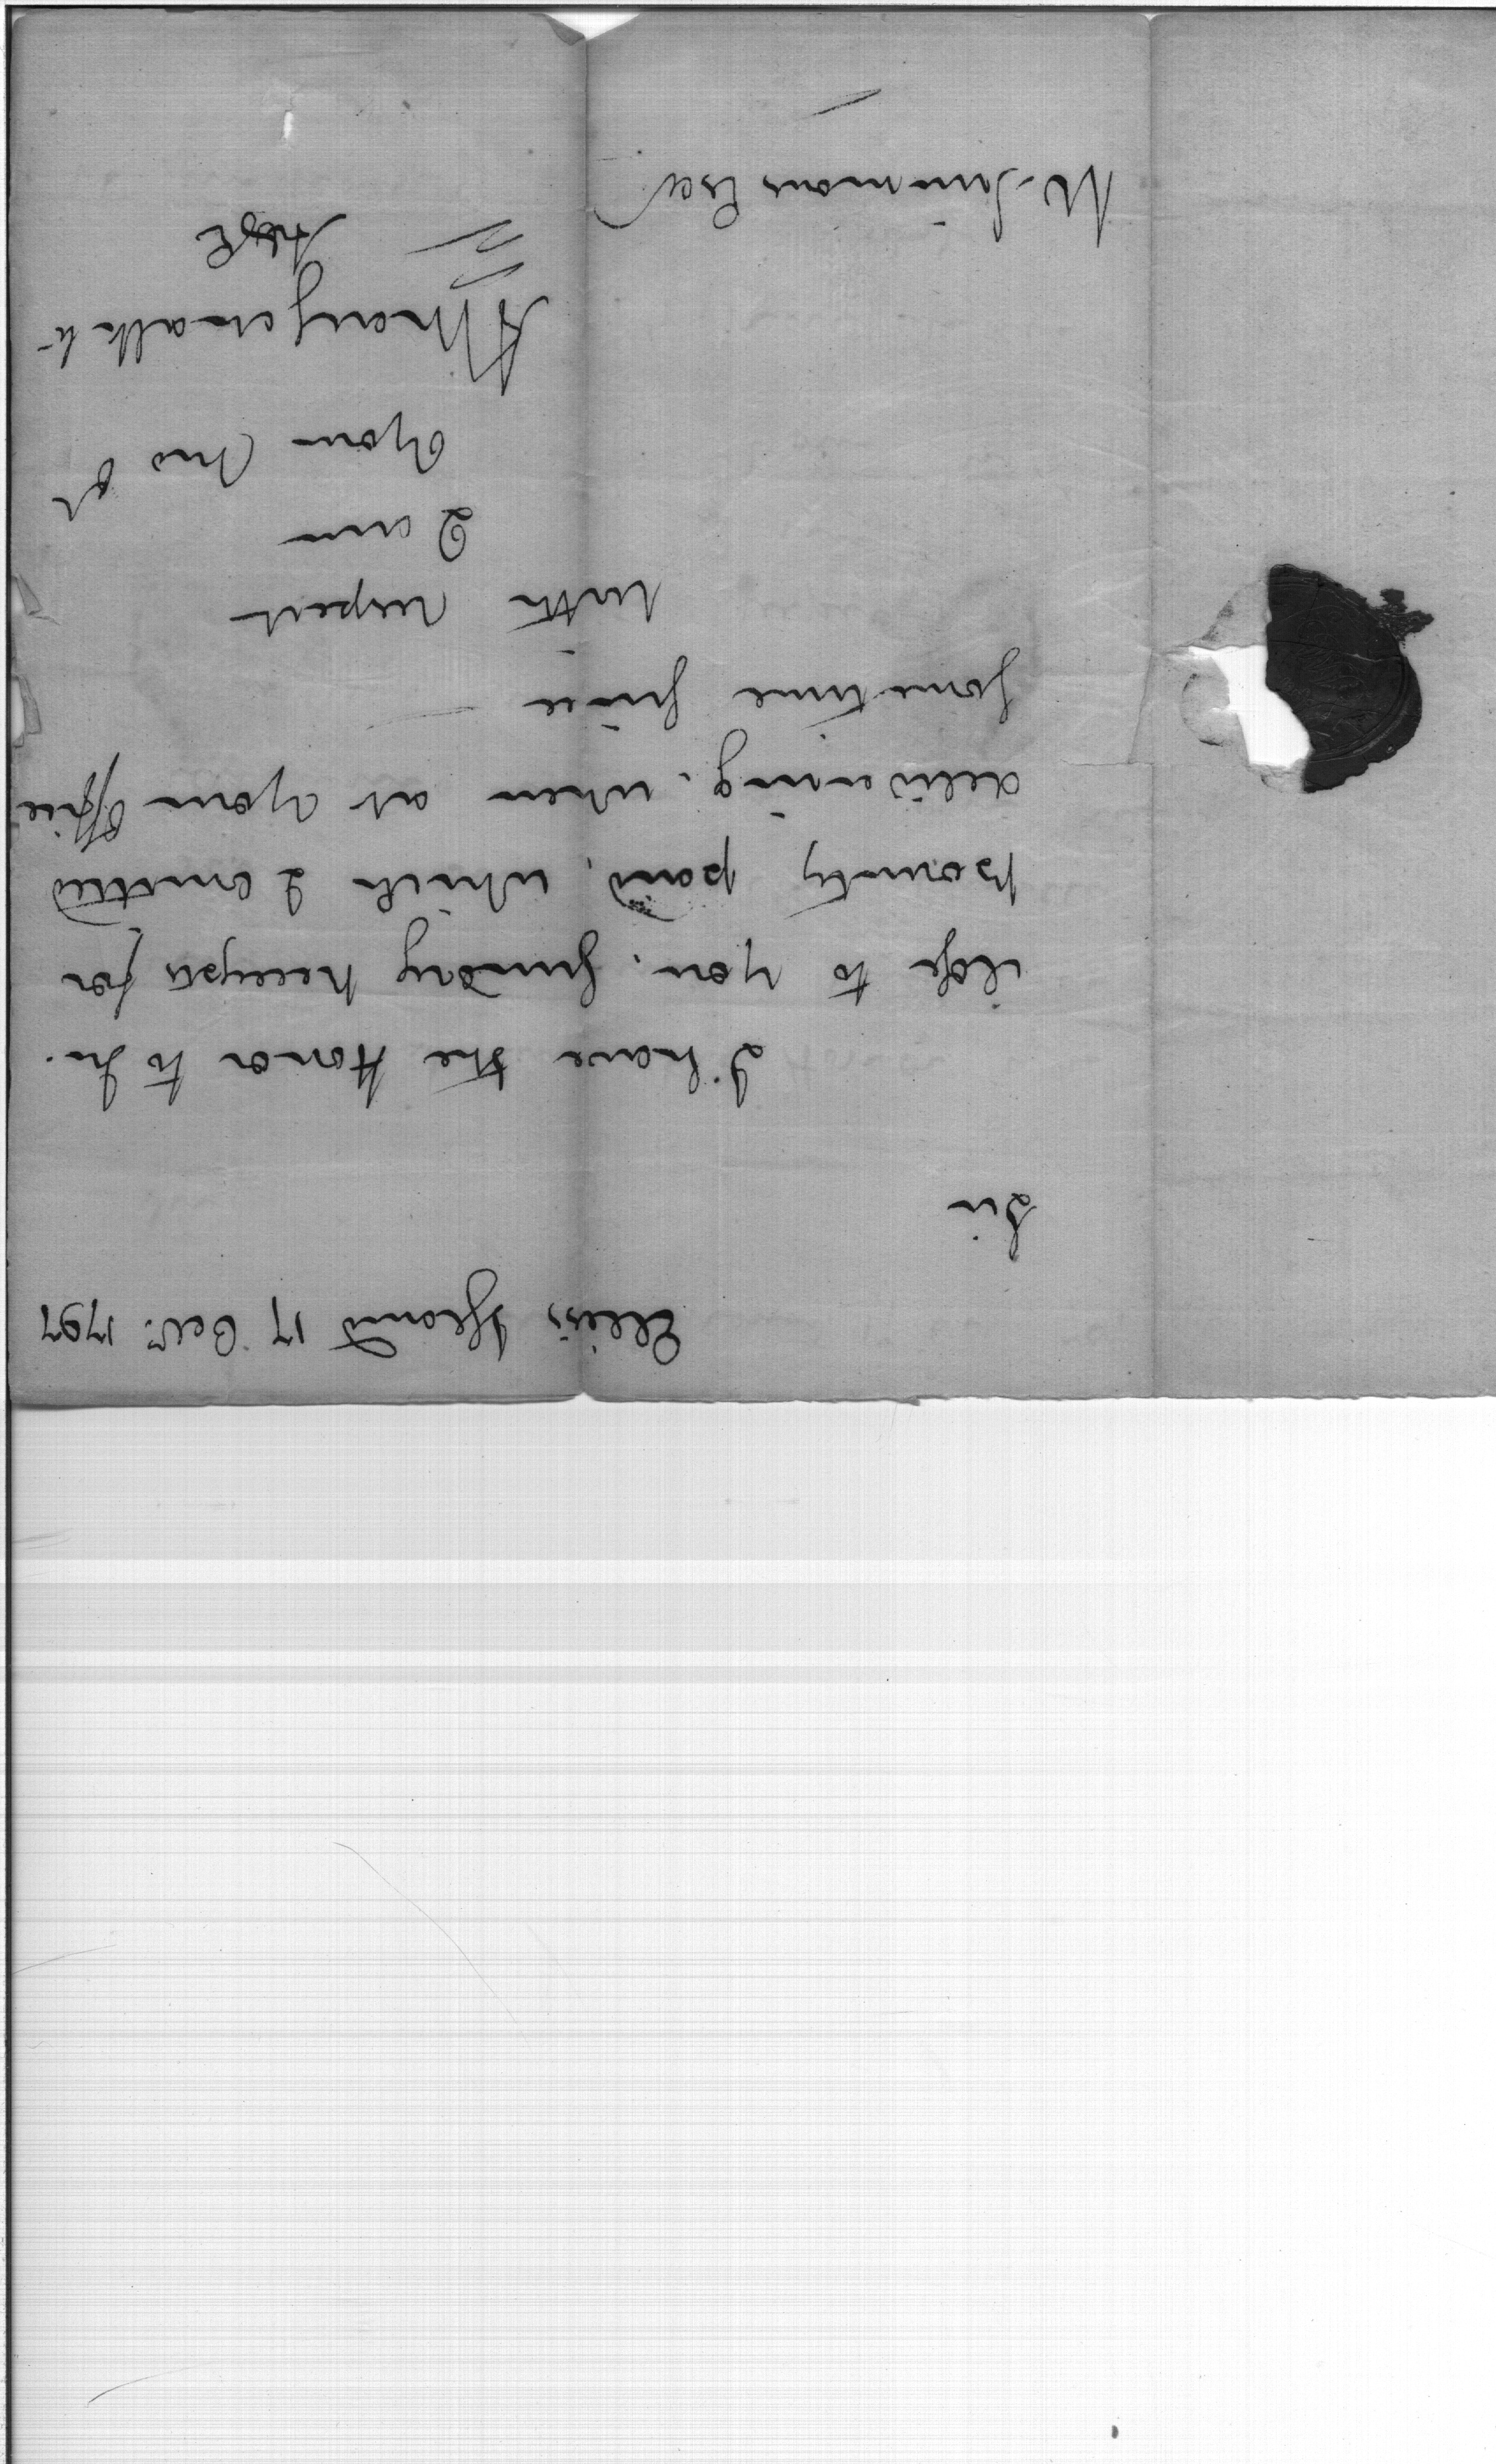 Ellis's Island 17 Oct. 1797
Sir
I have the Honor to In=
close to you, sundry Receipts for
bounty paid, which I omitted
delivering, when at your office
some time since
With respect
I am
your
A Marschalk Lt
W Simmons Esqr